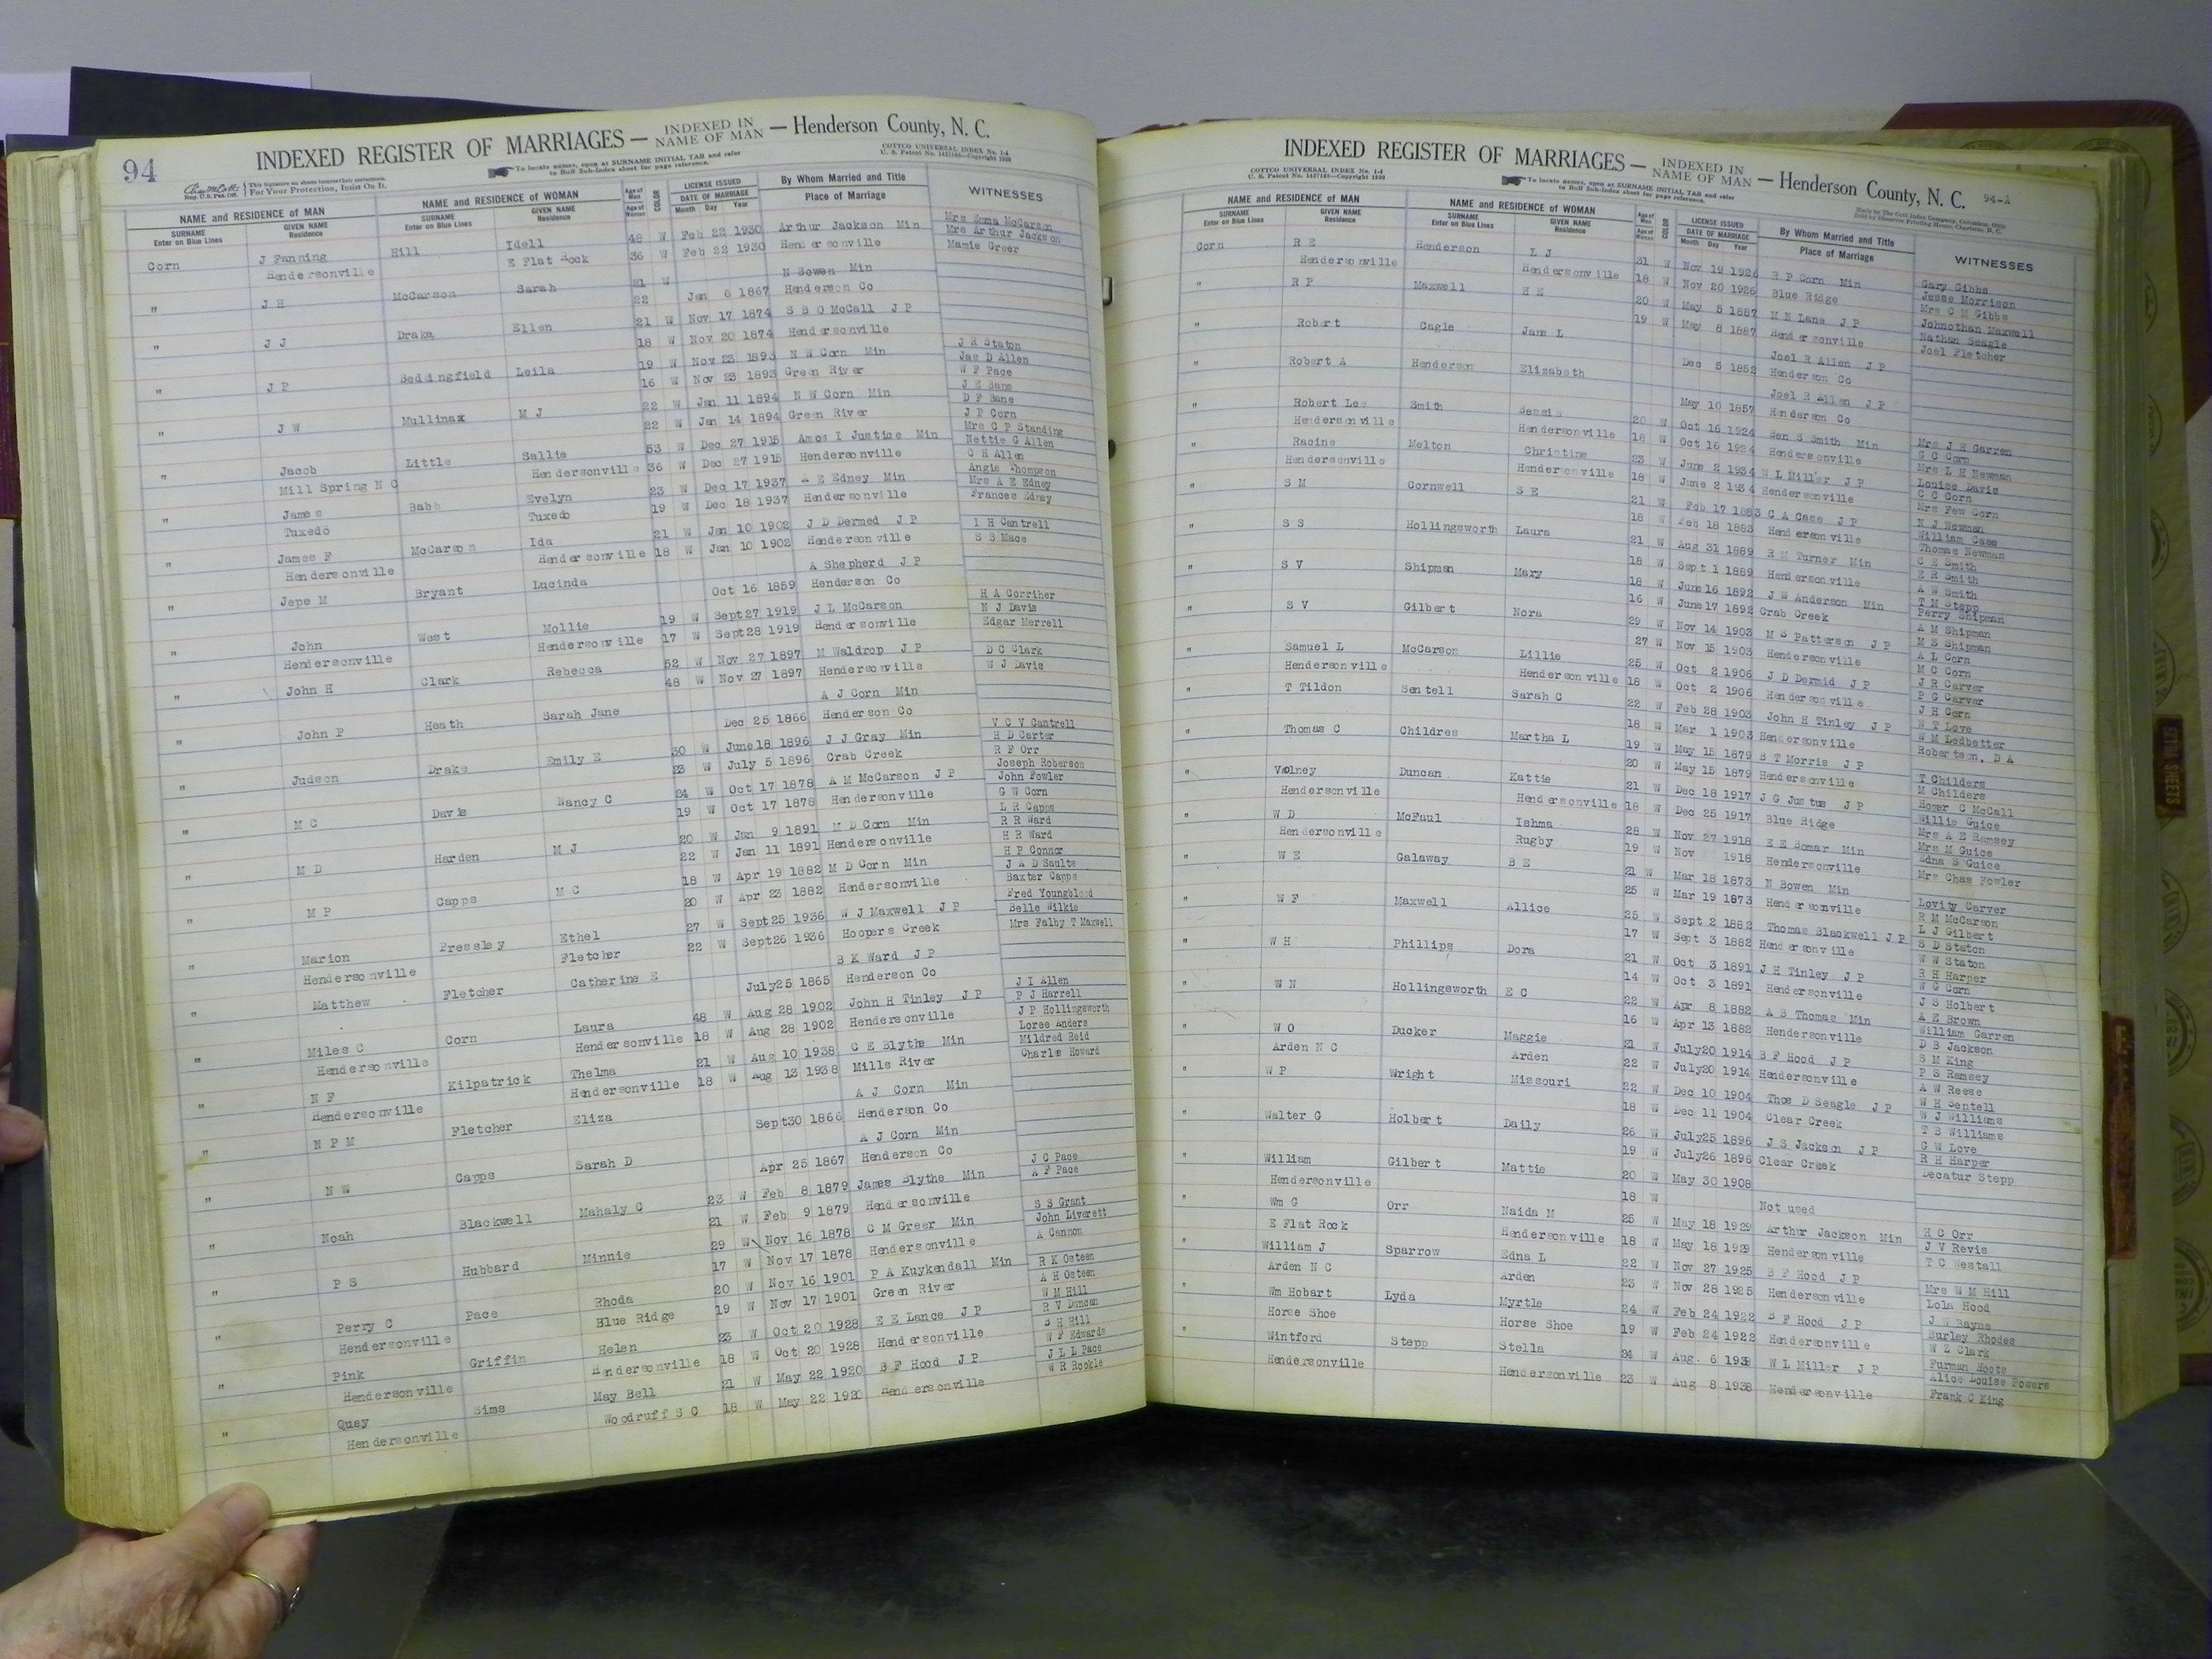 94
INDEXED REGISTER OF MARRIAGES — INDEXED IN NAME OF MAN — Henderson County, N. C.
To locate names, open at SURNAME INITIAL TAB and refer to Buff Sub-Index sheet for page reference.
COTTCO UNIVERSAL INDEX No. 1-4
For Your Protection, Insist On It.
NAME and RESIDENCE OF MAN NAME and RESIDENCE OF WOMAN Age of Man Age of Woman COLOR LICENSE ISSUED DATE OF MARRIAGE By Whom Married and Title Place of Marriage WITNESSES
SURNAME Enter on Blue Lines GIVEN NAME Residence SURNAME Enter on Blue Lines GIVEN NAME Residence Month Day Year
Corn J Fanning Hill Idell 48 W Feb 22 1930 Arthur Jackson Min Mrs Emma McCarson
Mrs Arthur Jackson
Hendersonville E Flat Rock 36 W Feb 22 1930 Hendersonville Mamie Greer
" J H McCarson Sarah 21 W N Bowen Min
22 Jan 6 1867 Henderson Co
" J J Drake Ellen 21 W Nov 17 1874 S B O McCall J P
18 W Nov 20 1874 Hendersonville
" J P Beddingfield Leila 19 W Nov 23 1893 N W Corn Min J H Staton
Jas D Allen
16 W Nov 23 1893 Green River W F Pace
" J W Mullinax M J 22 W Jan 11 1894 N W Corn Min J E Bane
D F Bane
22 W Jan 14 1894 Green River J P Corn
" Jacob Little Sallie 53 W Dec 27 1915 Amos I Justice Min Mrs C P Standing
Nettie G Allen
Mill Spring N C Hendersonville 36 W Dec 27 1915 Hendersonville C H Allen
" James Babb Evelyn 23 W Dec 17 1937 A E Edney Min Angie Thompson
Mrs A E Edney
Tuxedo Tuxedo 19 W Dec 18 1937 Hendersonville Frances Edney
" James F McCarson Ida 21 W Jan 10 1902 J D Dermed J P I H Cantrell
Hendersonville Hendersonville 18 W Jan 10 1902 Hendersonville S B Mace
" Jepe M Bryant Lucinda A Shepherd J P
Oct 16 1859 Henderson Co
" John West Mollie 19 W Sept 27 1919 J L McCarson H A Corriher
N J Davis
Hendersonville Hendersonville 17 W Sept 28 1919 Hendersonville Edgar Merrell
" John H Clark Rebecca 52 W Nov 27 1897 M Waldrop J P D C Clark
48 W Nov 27 1897 Hendersonville W J Davis
" John P Heath Sarah Jane A J Corn Min
Dec 25 1866 Henderson Co
" Judson Drake Emily E 30 W June 18 1896 J J Gray Min V C V Cantrell
H D Carter
23 W July 5 1896 Crab Creek R F Orr
" M C Davis Nancy C 24 W Oct 17 1878 A M McCarson J P Joseph Roberson
John Fowler
19 W Oct 17 1878 Hendersonville G W Corn
" M D Harden M J 20 W Jan 9 1891 M D Corn Min L R Capps
R R Ward
22 W Jan 11 1891 Hendersonville H R Ward
" M P Capps M C 18 W Apr 19 1882 M D Corn Min H P Connor
J A D Saults
20 W Apr 23 1882 Hendersonville Baxter Capps
" Marion Pressley Ethel 27 W Sept 25 1936 W J Maxwell J P Fred Youngblood
Belle Wilkie
Hendersonville Fletcher 22 W Sept 26 1936 Hoopers Creek Mrs Falby T Maxwell
Matthew Fletcher Catherine E B K Ward J P
July 25 1865 Henderson Co
" Miles C Corn Laura 48 W Aug 28 1902 John H Tinley J P J I Allen
P J Harrell
Hendersonville Hendersonville 18 W Aug 28 1902 Hendersonville J P Hollingsworth
" N F Kilpatrick Thelma 21 W Aug 10 1938 C E Blythe Min Loree Anders
Mildred Reid
Hendersonville Hendersonville 18 W Aug 13 1938 Mills River Charlie Howard
" N P M Fletcher Eliza A J Corn Min
Sept 30 1866 Henderson Co
" N W Capps Sarah D A J Corn Min
Apr 25 1867 Henderson Co
" Noah Blackwell Mahaly C 23 W Feb 8 1879 James Blythe Min J C Pace
A F Pace
21 W Feb 9 1879 Hendersonville
" P S Hubbard Minnie 29 W Nov 16 1878 C M Greer Min S S Grant
John Liverett
17 W Nov 17 1878 Hendersonville A Cannon
" Perry C Pace Rhoda 20 W Nov 16 1901 P A Kuykendall Min R K Osteen
A H Osteen
Hendersonville Blue Ridge 19 W Nov 17 1901 Green River W M Hill
" Pink Griffin Helen 23 W Oct 20 1928 E E Lance J P R V Duncan
B H Hill
Hendersonville Hendersonville 18 W Oct 20 1928 Hendersonville W F Edwards
" Quay Sims May Bell 21 W May 22 1920 B F Hood J P J L L Pace
Hendersonville Woodruff S C 18 W May 22 1920 Hendersonville W R Rookle
INDEXED REGISTER OF MARRIAGES — INDEXED IN NAME OF MAN — Henderson County, N. C. 94-A
COTTCO UNIVERSAL INDEX No. 1-4
To locate names, open at SURNAME INITIAL TAB and refer to Buff Sub-Index sheet for page reference.
NAME and RESIDENCE OF MAN NAME and RESIDENCE OF WOMAN Age of Man Age of Woman COLOR LICENSE ISSUED DATE OF MARRIAGE By Whom Married and Title Place of Marriage WITNESSES
SURNAME Enter on Blue Lines GIVEN NAME Residence SURNAME Enter on Blue Lines GIVEN NAME Residence Month Day Year
Corn R E Henderson L J 31 W Nov 19 1926 R P Corn Min Gary Gibbs
Jesse Morrison
Hendersonville Hendersonville 18 W Nov 20 1926 Blue Ridge Mrs C M Gibbs
" R P Maxwell H E 20 W May 5 1887 M N Lane J P Johnothan Maxwell
Nathan Seagle
19 W May 8 1887 Hendersonville Joel Fletcher
" Robert Cagle Jane L Joel R Allen J P
Dec 5 1852 Henderson Co
" Robert A Henderson Elizabeth Joel R Allen J P
May 10 1857 Henderson Co
" Robert Lee Smith Bessie 20 W Oct 16 1924 Ben S Smith Min Mrs J H Garren
G C Corn
Hendersonville Hendersonville 18 W Oct 16 1924 Hendersonville Mrs L H Newman
" Racine Melton Christine 23 W June 2 1934 W L Miller J P Louise Davis
C C Corn
Hendersonville Hendersonville 18 W June 2 1934 Hendersonville Mrs Few Corn
" S M Cornwell S E 21 Feb 17 1883 C A Case J P N J Newman
William Case
18 W Feb 18 1883 Hendersonville Thomas Newman
" S S Hollingsworth Laura 21 W Aug 31 1889 R M Turner Min C E Smith
E R Smith
18 W Sept 1 1889 Hendersonville A W Smith
" S V Shipman Mary 18 W June 16 1892 J W Anderson Min T M Stepp
Perry Shipman
16 W June 17 1892 Crab Creek A M Shipman
" S V Gilbert Nora 29 W Nov 14 1903 M S Patterson J P M S Shipman
A L Corn
27 W Nov 15 1903 Hendersonville M C Corn
" Samuel L McCarson Lillie 25 W Oct 2 1906 J D Dermid J P J R Carver
P G Carver
Hendersonville Hendersonville 18 W Oct 2 1906 Hendersonville J H Corn
" T Tildon Sentell Sarah C 22 W Feb 28 1903 John H Tinley J P W T Love
W M Ledbetter
18 W Mar 1 1903 Hendersonville Robertson, D A
" Thomas C Childres Martha L 19 W May 15 1879 B T Morris J P T Childers
20 W May 15 1879 Hendersonville M Childers
" Volney Duncan Kattie 21 W Dec 18 1917 J G Justus J P Homer C McCall
Willie Guice
Hendersonville Hendersonville 18 W Dec 25 1917 Blue Ridge Mrs A E Ramsey
" W D McFaul Ishma 28 W Nov 27 1918 E E Bomar Min Mrs M Guice
Edna S Guice
Hendersonville Rugby 19 W Nov 1918 Hendersonville Mrs Chas Fowler
" W E Galaway B E 21 W Mar 18 1873 N Bowen Min Lovity Carver
25 W Mar 19 1873 Hendersonville R M McCarson
" W F Maxwell Allice 25 W Sept 2 1882 Thomas Blackwell J P L J Gilbert
S D Staton
17 W Sept 3 1882 Hendersonville W W Staton
" W H Phillips Dora 21 W Oct 3 1891 J H Tinley J P R H Harper
W G Corn
14 W Oct 3 1891 Hendersonville J S Holbert
" W N Hollingsworth E C 22 W Apr 8 1882 A B Thomas Min A E Brown
William Garren
16 W Apr 13 1882 Hendersonville D B Jackson
" W O Ducker Maggie 21 W July 20 1914 B F Hood J P S M King
P S Ramsey
Arden N C Arden 22 W July 20 1914 Hendersonville A W Reese
" W P Wright Missouri 22 W Dec 10 1904 Thos D Seagle J P W H Sentell
W J Williams
18 W Dec 11 1904 Clear Creek T B Williams
" Walter G Holbert Daily 26 W July 25 1896 J S Jackson J P G W Love
R H Harper
19 W July 26 1896 Clear Creek Decatur Stepp
" William Gilbert Mattie 20 W May 30 1908
Hendersonville 18 W Not used
" Wm G Orr Naida M 25 W May 18 1929 Arthur Jackson Min H C Orr
J V Revis
E Flat Rock Hendersonville 18 W May 18 1929 Hendersonville T C Westall
" William J Sparrow Edna L 22 W Nov 27 1925 B F Hood J P Mrs W M Hill
Arden N C Arden 23 W Nov 28 1925 Hendersonville Lola Hood
" Wm Hobart Lyda Myrtle 24 W Feb 24 1922 B F Hood J P J W Bayne
Burley Rhodes
Horse Shoe Horse Shoe 19 W Feb 24 1922 Hendersonville W Z Clark
" Wintford Stepp Stella 24 W Aug. 6 1938 W L Miller J P Furman Hoots
Alice Louise Powers
Hendersonville Hendersonville 23 W Aug 8 1938 Hendersonville Frank C King